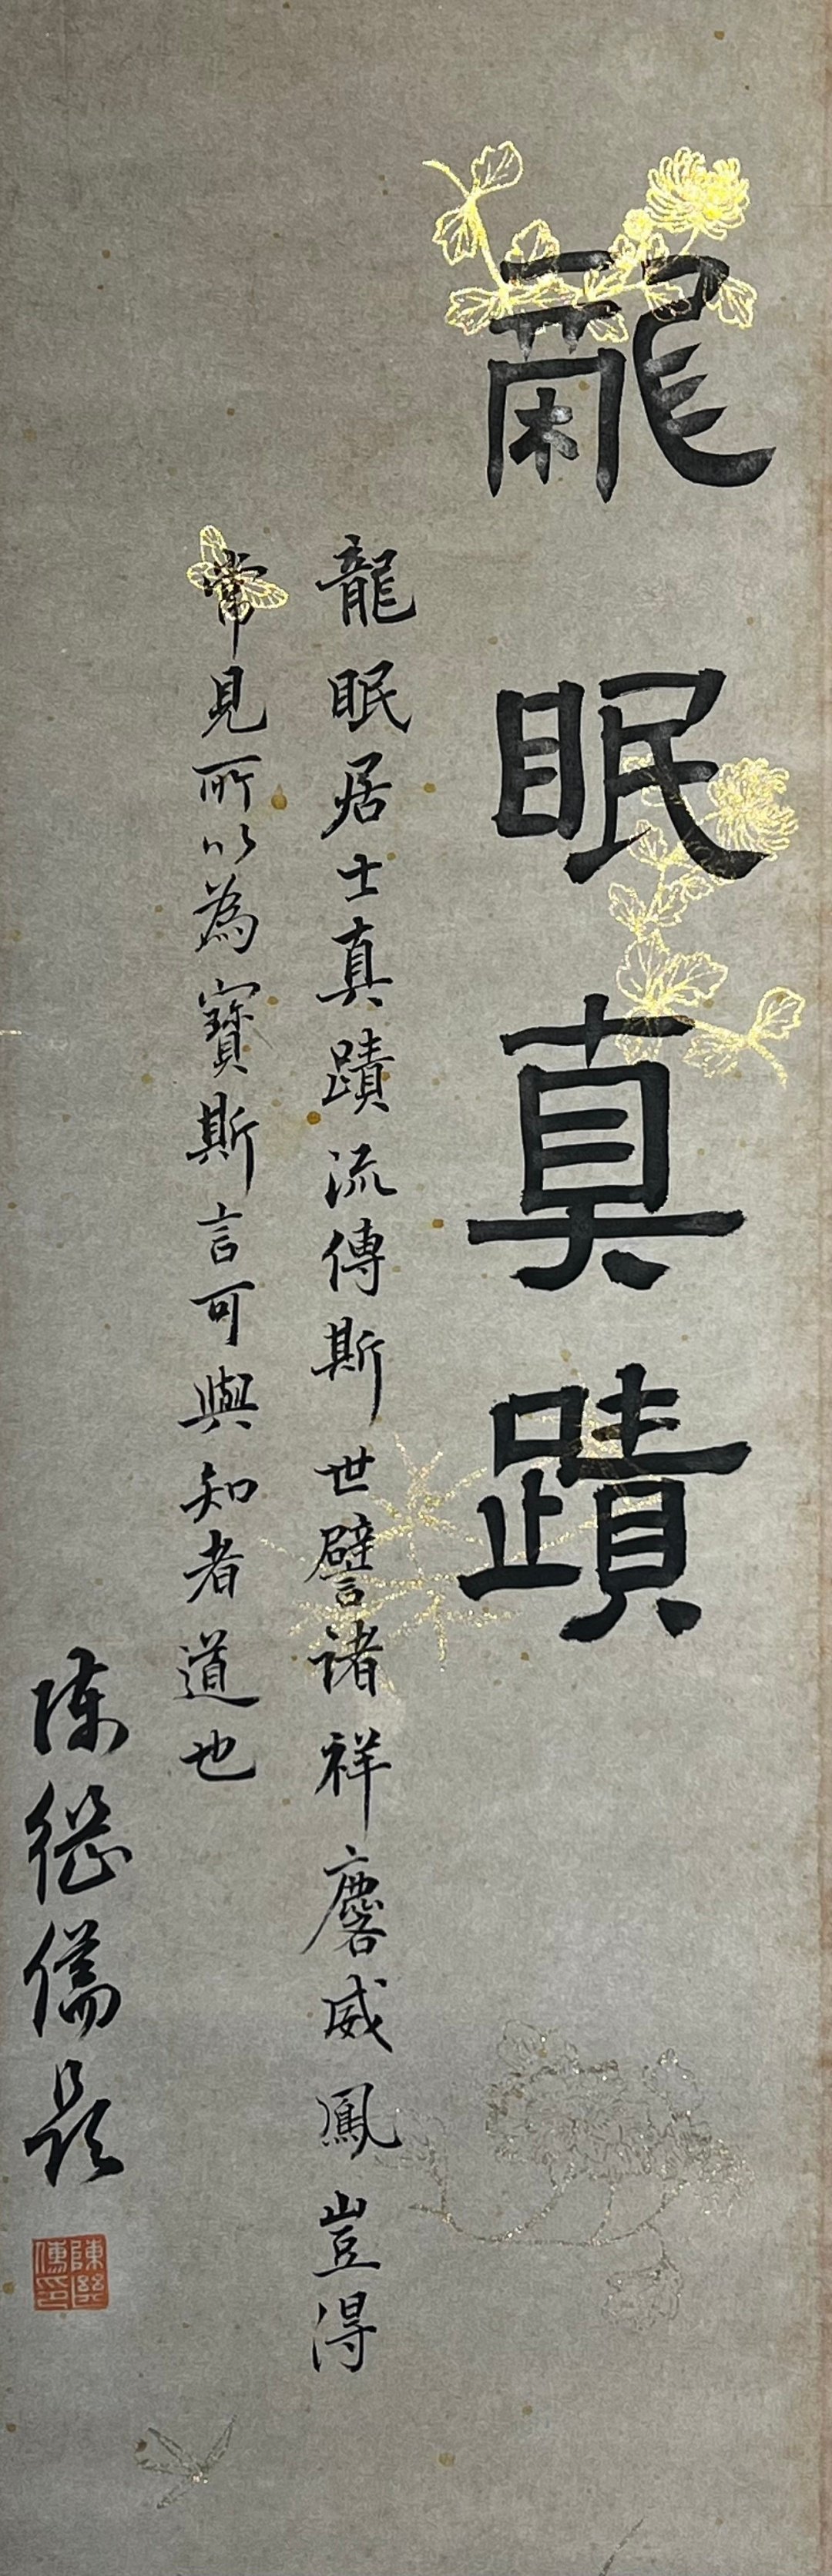 龍眠真蹟
龍眠居士真蹟流傳斯世譬諸祥麐威鳳豈得
常見所以為寶斯言可與知者道也
陳繼儒題
陳繼儒印